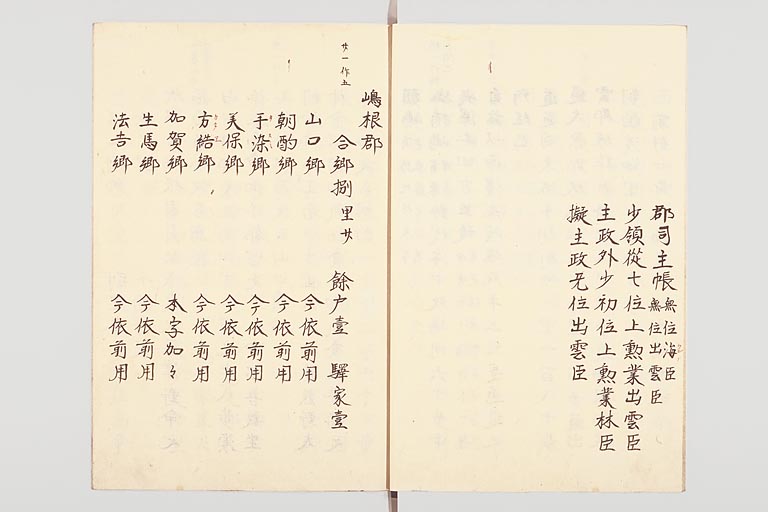 郡司主帳無位海臣
無位出雲臣
少領從七位上勲業出雲臣
主政外少初位上勲業林臣
擬主政无位出雲臣
嶋根郡
合郷捌 里廿 餘户壹 驛家壹
廿一作五
山口郷 今依前用
朝酌郷 今依前用
手染郷 今依前用
美保郷 今依前用
方結郷 今依前用
加賀郷 本字加々
生馬郷 今依前用
法吉郷 今依前用